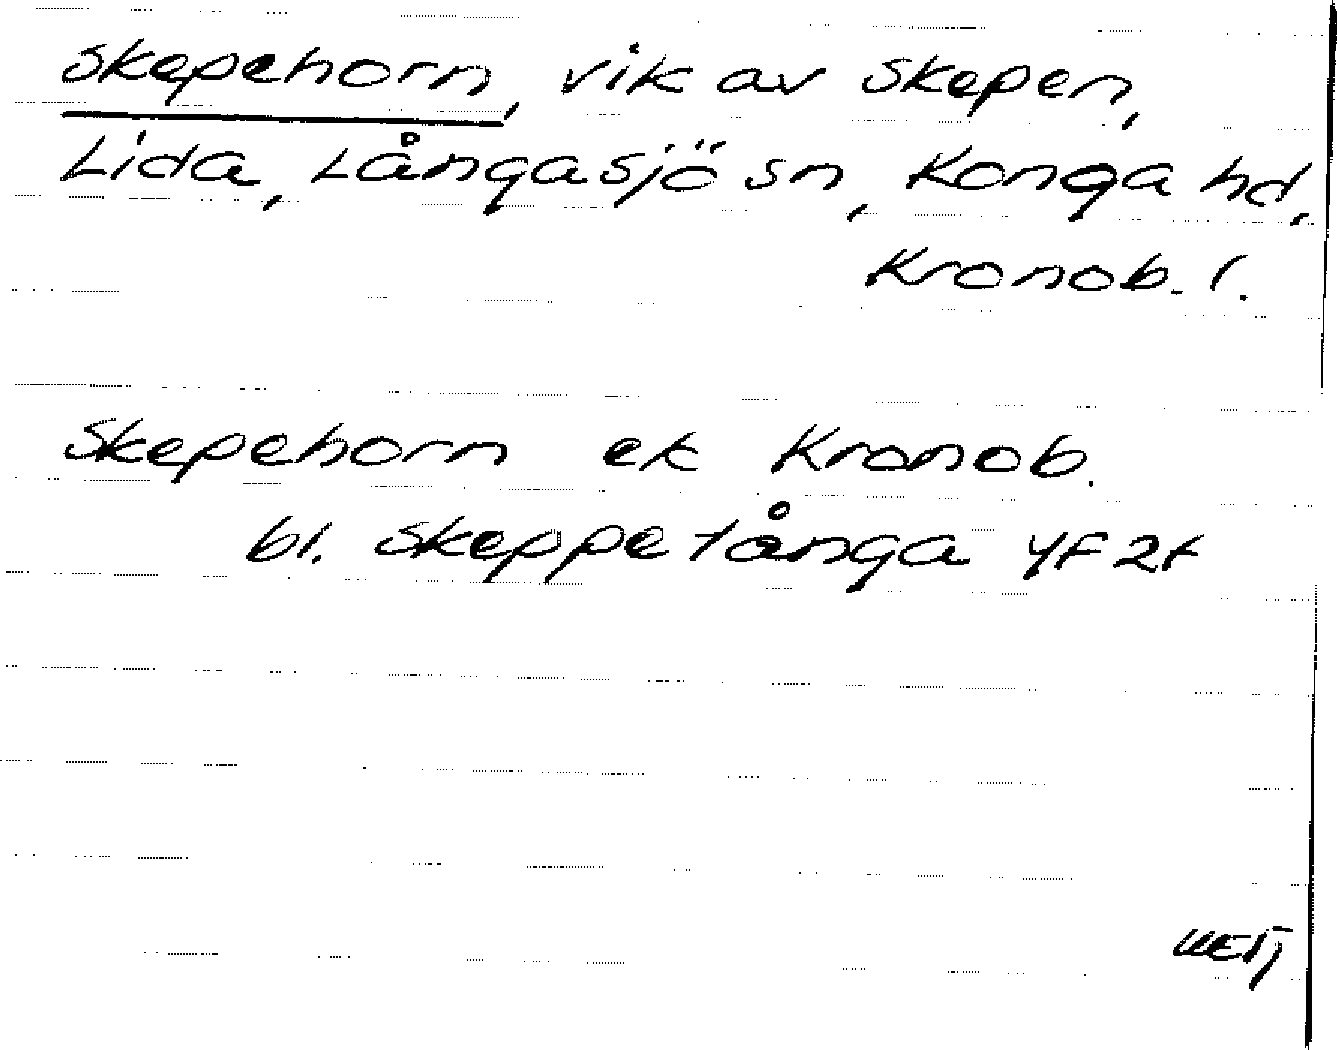 Skepehorn, vik av Skepen,
Lida, Långasjö sn, Konga hd,
Kronob. l.
Skepehorn ek Kronob.
bl. Skeppetånga 4F 2f